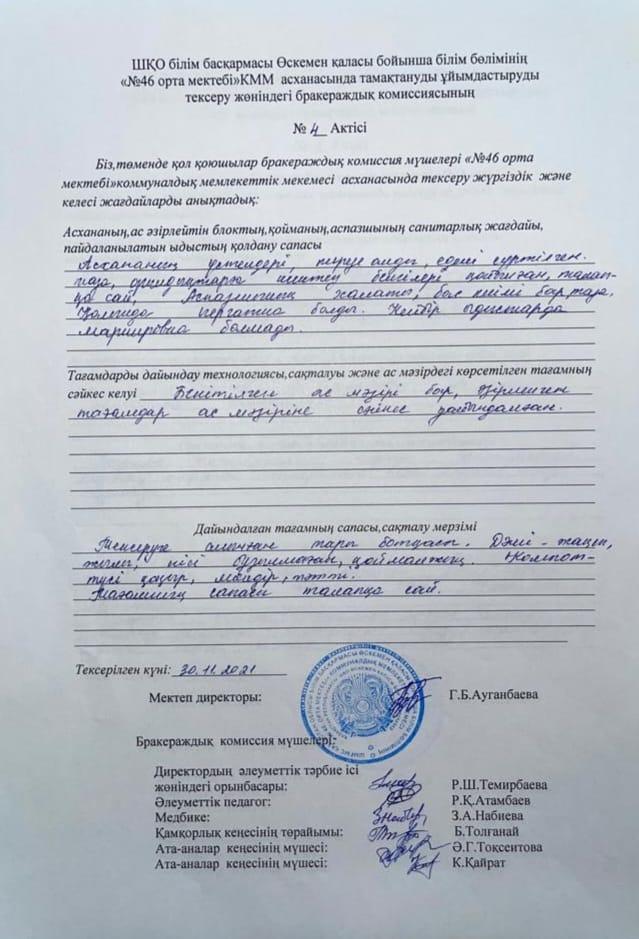 ШҚО білім басқармасы Өскемен қаласы бойынша білім бөлімінің
«№46 орта мектебі»КММ асханасында тамақтануды ұйымдастыруды
тексеру жөніндегі бракераждық комиссиясының
№ 4 Актісі
Біз,төменде қол қоюшылар бракераждық комиссия мүшелері «№46 орта
мектебі»коммуналдық мемлекеттік мекемесі асханасында тексеру жүргіздік және
келесі жағдайларды анықтадық:
Асхананың,ас әзірлейтін блоктың,қойманың,аспазшының санитарлық жағдайы,
пайдаланылатын ыдыстың қолдану сапасы
Асхананың үстелдері, терезе алды, едені сүртілген.
таза, белгілері талап-
қа сай. Аспазшының халаты, бас киімі бар таза,
қолында перчатка болды. Кейбір ыдыстарда
маркировка болмады.
Тағамдарды дайындау технологиясы,сақталуы және ас мәзірдегі көрсетілген тағамның
сәйкес келуі Бекітілген ас мәзірі бар, әзірленген
тағамдар ас мәзіріне дайындалған.
Дайындалған тағамның сапасы,сақталу мерзімі
Тексеруге алынған тары ботқасы. Дәмі -
иісі бұзылмаған, қоймалжың. Компот-
түсі қоңыр, мөлдір, тәтті.
Тағамның сапасы талапқа сай.
Тексерілген күні: 30.11.2021
Мектеп директоры: Г.Б.Ауганбаева
Бракераждық комиссия мүшелері:
Директордың әлеуметтік тәрбие ісі
жөніндегі орынбасары: Р.Ш.Темирбаева
Әлеуметтік педагог: Р.Қ.Атамбаев
Медбике: З.А.Набиева
Қамқорлық кеңесінің төрайымы: Б.Толғанай
Ата-аналар кеңесінің мүшесі: Ә.Г.Токсеитова
Ата-аналар кеңесінің мүшесі: К.Қайрат